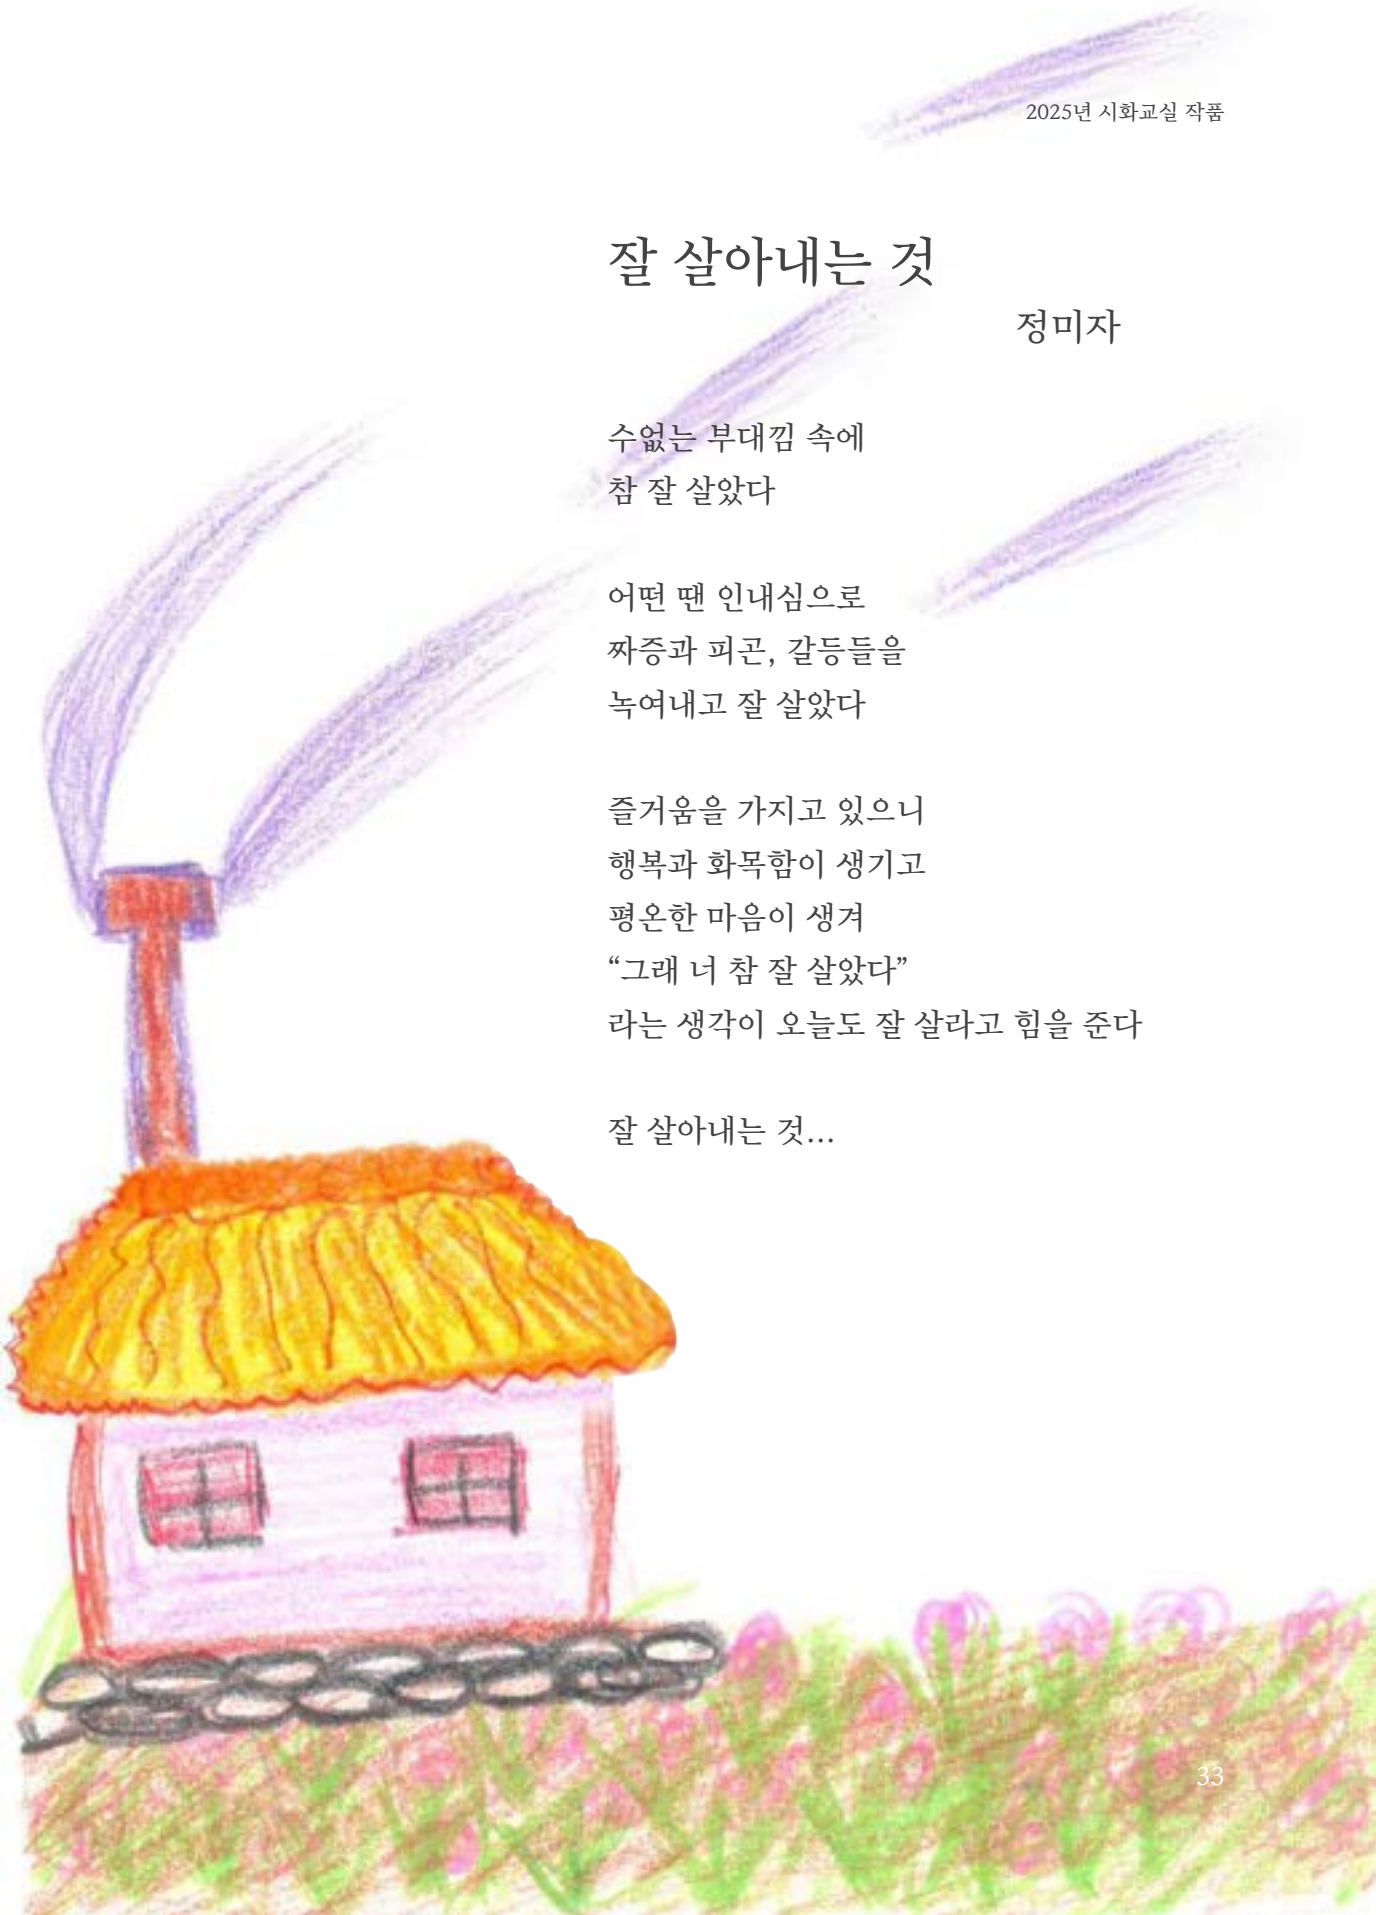 2025년 시화교실 작품
잘 살아내는 것
정미자
수없는 부대낌 속에
참 잘 살았다
어떤 땐 인내심으로
짜증과 피곤, 갈등들을
녹여내고 잘 살았다
즐거움을 가지고 있으니
행복과 화목함이 생기고
평온한 마음이 생겨
“그래 너 참 잘 살았다”
라는 생각이 오늘도 잘 살라고 힘을 준다
잘 살아내는 것...
33